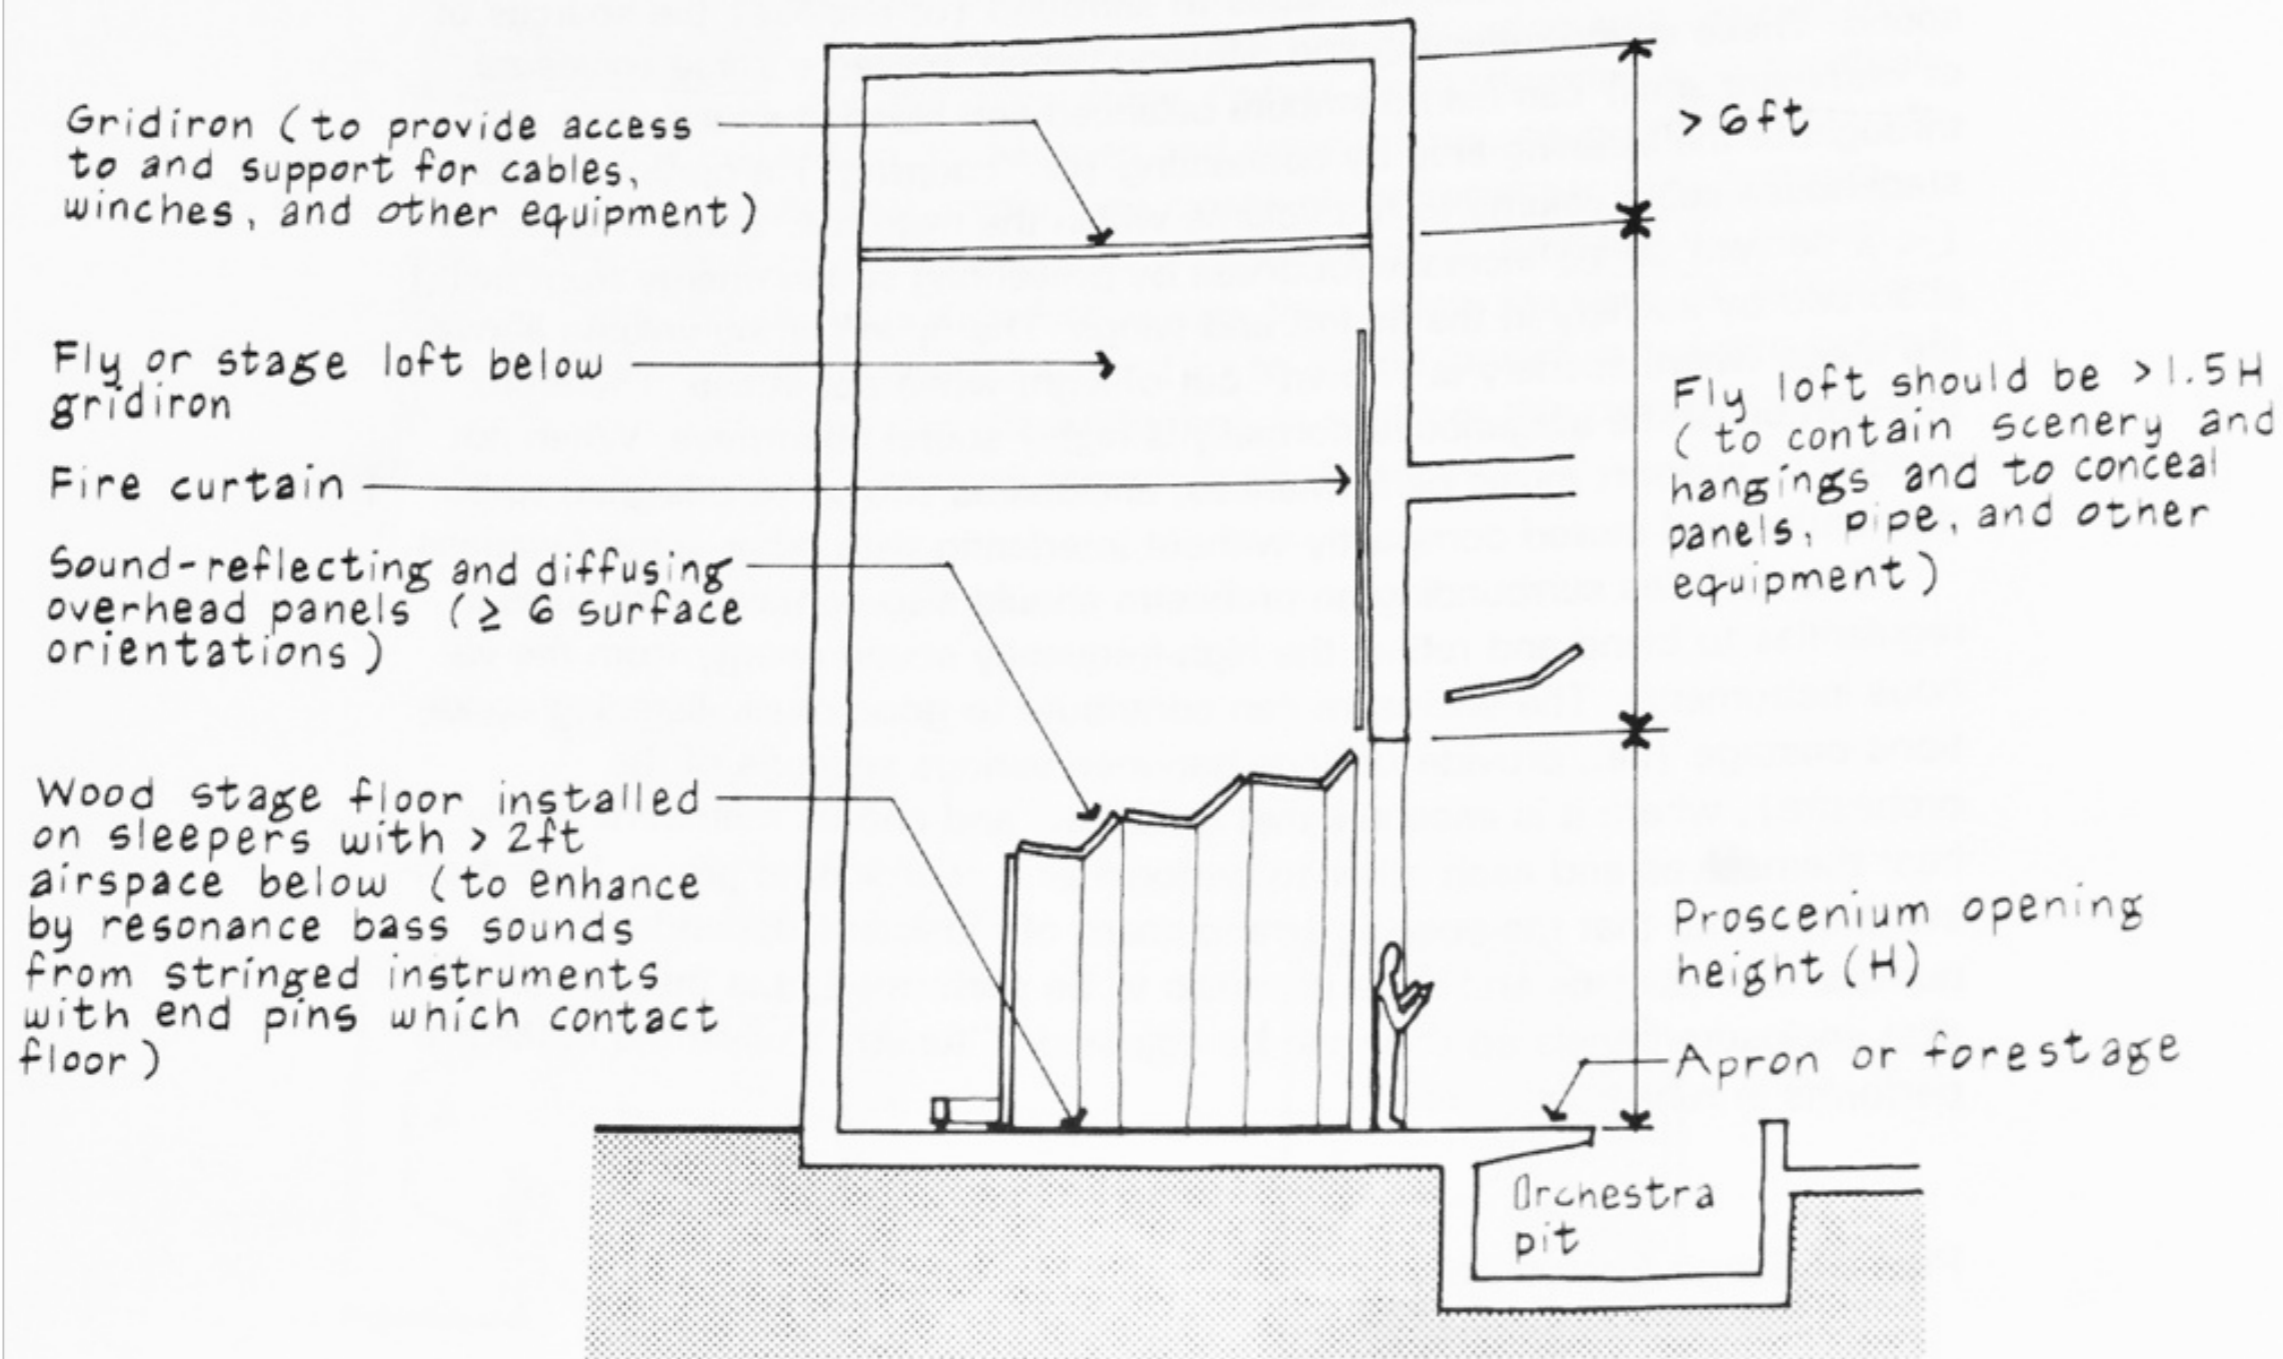 Gridiron (to provide access
to and support for cables,
winches, and other equipment)
Fly or stage loft below
gridiron
Fire curtain
Sound-reflecting and diffusing
overhead panels (≥ 6 surface
orientations)
Wood stage floor installed
on sleepers with > 2ft
airspace below (to enhance
by resonance bass sounds
from stringed instruments
with end pins which contact
floor)
> 6ft
Fly loft should be > 1.5H
(to contain scenery and
hangings and to conceal
panels, pipe, and other
equipment)
Proscenium opening
height (H)
Apron or forestage
Orchestra
pit